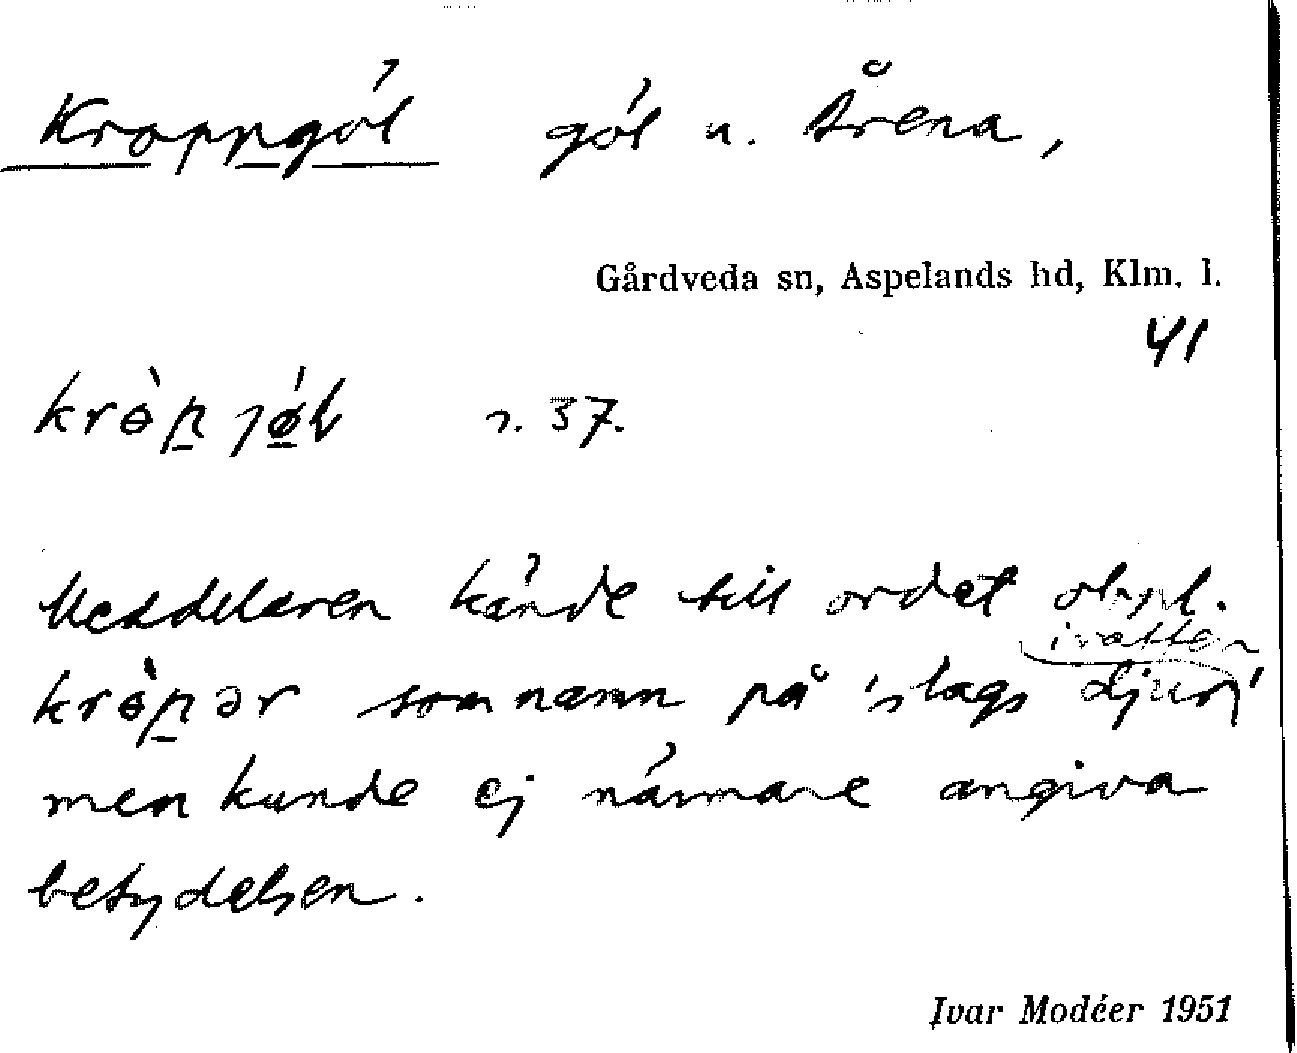 Kroppgöl göl n. Årena,
Gårdveda sn, Aspelands hd, Klm. l.
41
krɵ̀p jø̀l s. 37.
Meddelaren kände till ordet
i vatten
krɵ̀pər som namn på 'slags djur'
men kunde ej närmare angiva
betydelsen.
Ivar Modéer 1951